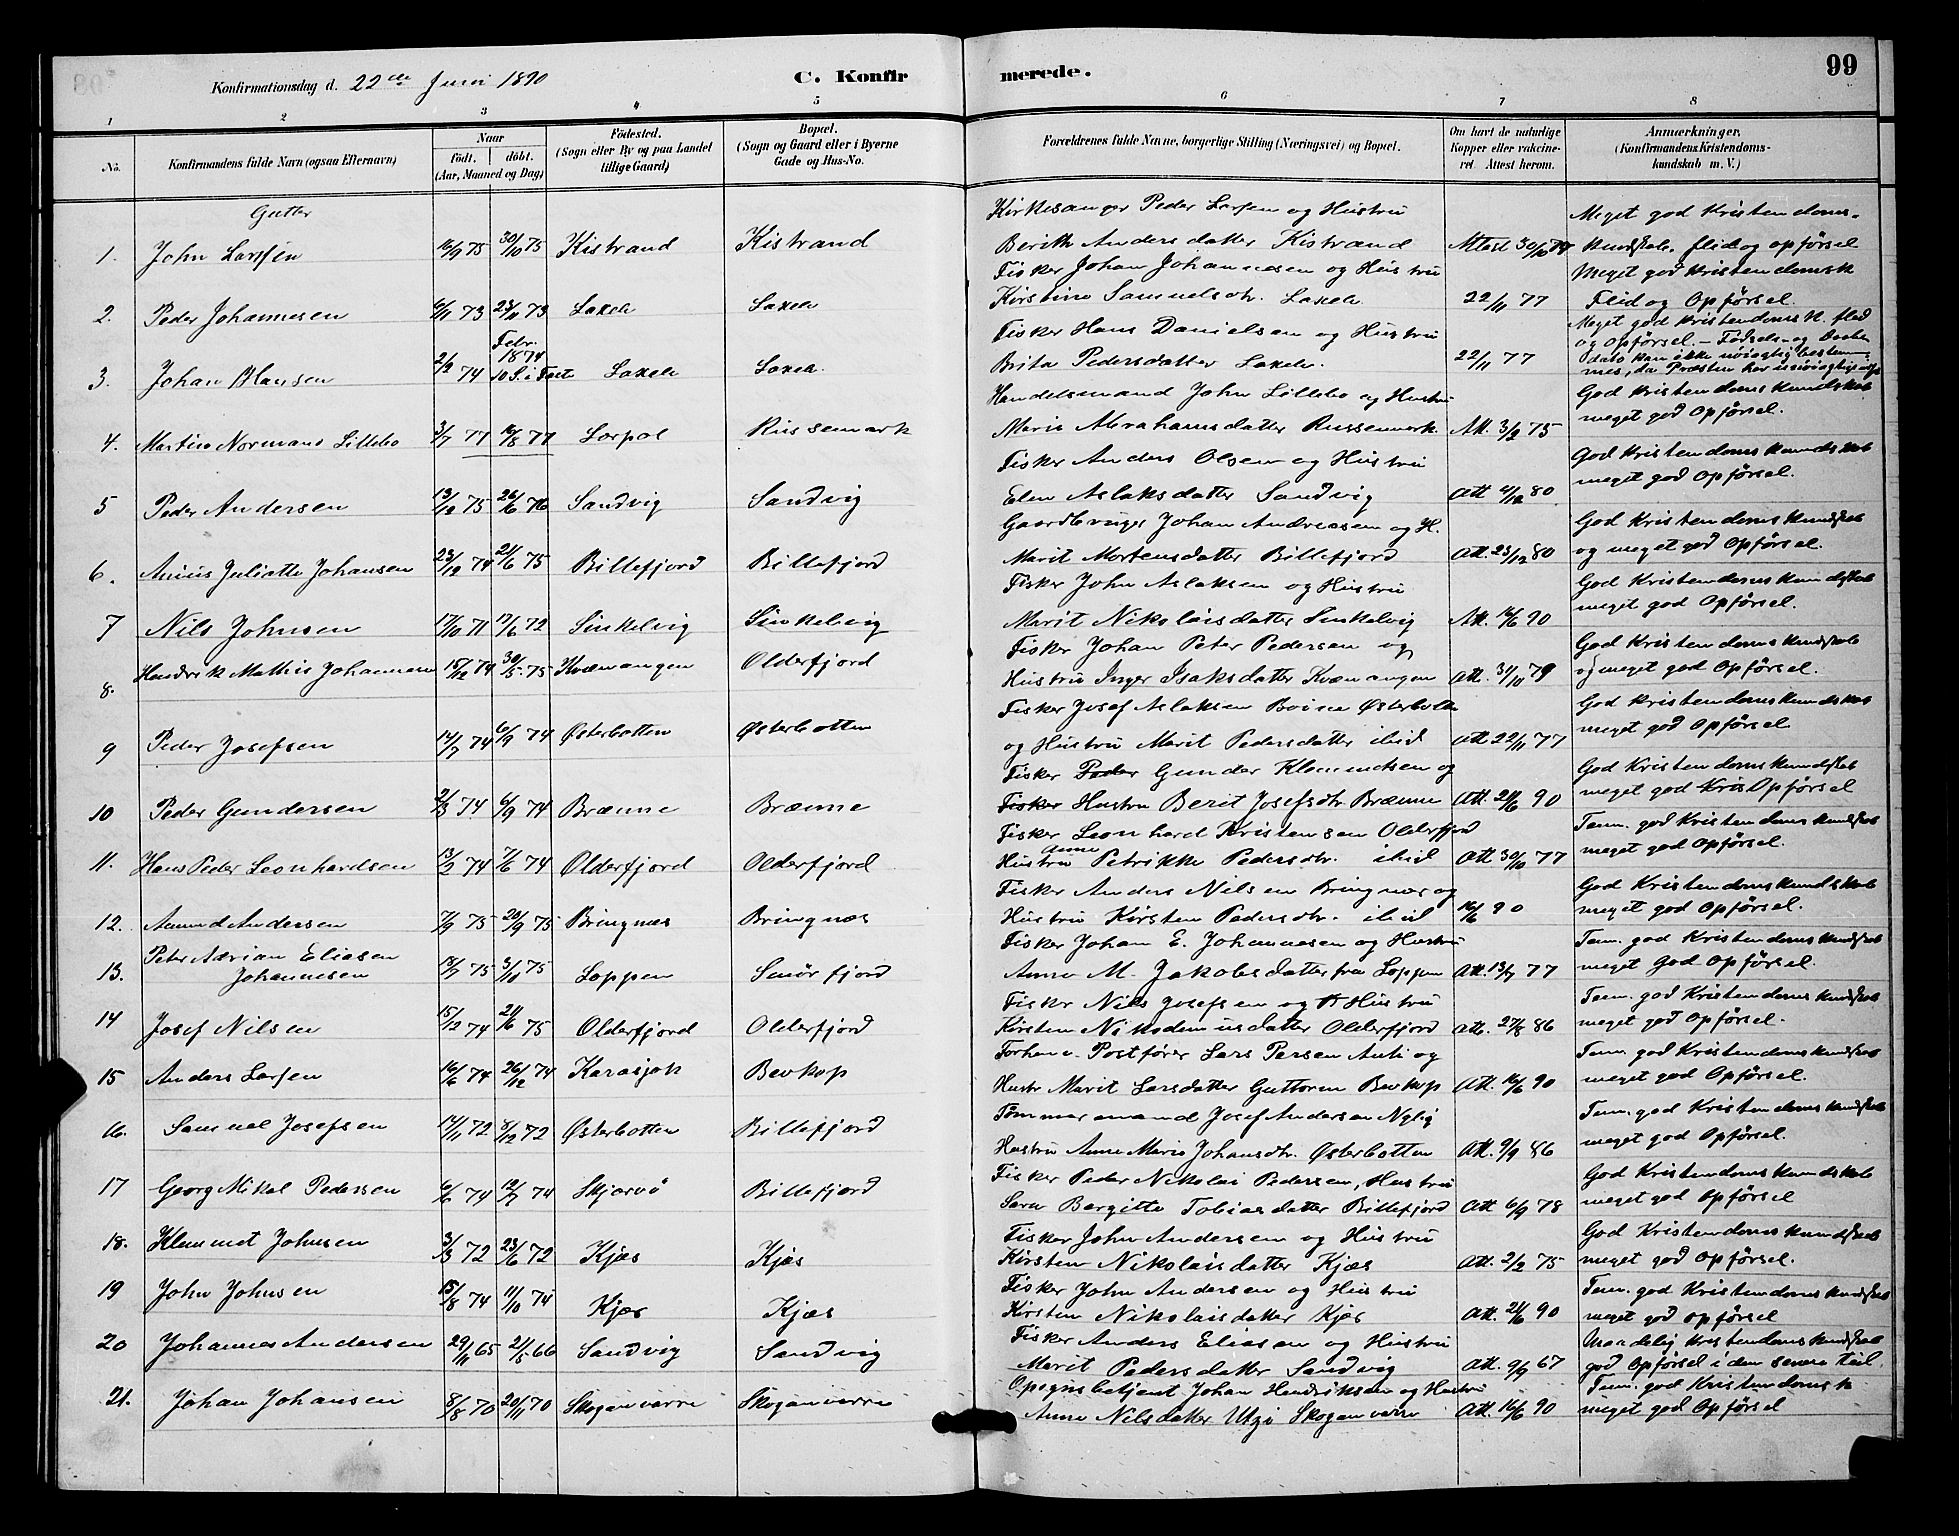 Konfirmationsdag d. 22de Juni 1890 C. Konfir merede. 99
1 2 3 4 5 6 7 8
No. Konfirmandens fulde Navn (ogsaa Efternavn) Naar født. døbt. (Aar, Maaned og Dag) Fødested. (Sogn eller By og paa Landet tillige Gaard) Bopæl. (Sogn og Gaard eller i Byerne Gade og Hus-No. Forældrenes fulde Navne, borgerlige Stilling (Næringsvei) og Bopæl. Om havt de naturlige Kopper eller vakcineret. Attest herom. Anmærkninger, (Konfirmandens Kristendomskundskab m. V.)
Gutter
Kirkesanger Peder Larsen og Hustru Meget god Kristendoms-
1. John Larsen 16/9 75 30/10 75 Kistrand Kistrand Berith Andersdatter Kistrand Attest 30/10 kundskab, flid og opførsel
Fisker Johan Johannesen og Hustru Meget god Kristendomsk
2. Peder Johannesen 6/11 73 23/11 73 Laxelv Laxelv Kirstine Samuelsdtr. Laxelv 22/11 77 Flid og Opførsel.
Fisker Hans Danielsen og Hustru Meget god Kristendomsk. flid og Opførsel. – Fødsels- og Daabs
3. Johan Hansen 2/2 74 Febr. 1874 10 S. i Fast Laxelv Laxelv Brita Pedersdatter Laxelv. 22/11 77 dato kan ikke nøiagtig bestemmes, da Præsten har
Handelsmand John Lillebo og Hustru God Kristendomskundskab
4. Martin Normann Lillebo 3/7 74 16/8 74 Russemark Marie Abrahamsdatter Russemark. Att. 3/2 75 meget god Opførsel.
Fisker Anders Olsen og Hustru God Kristendomskundskab
5 Peder Andersen 13/12 75 26/6 76 Sandvig Sandvig Elen Aslaksdatter Sandvig Att 80 meget god Opførsel.
Gaardbruger Johan Andreasen og H. God Kristendomskundskab
6. Juliatte Johansen 23/12 74 21/6 75 Billefjord Billefjord Marit Mortensdatter Billefjord Att. 23/12 80 og meget god Opførsel.
Fisker John Aslaksen og Hustru God Kristendomskundskab
7 Nils Johnsen 17/10 71 17/6 72 Sinkelvig Sinkelvig Marit Nikolaisdatter Sinkelvig Att. 16/6 90 meget god Opførsel.
Fisker Johan Peter Pedersen og God Kristendomskundskab
8. Hendrik Mathis Johannesen 15/12 74 30/5 75 Kvænangen Olderfjord Hustru Inger Isaksdatter Kvænangen Att. 31/10 79 og meget god Opførsel.
Fisker Josef Aslaksen Østerbotten God Kristendomskundskab
9 Peder Josefsen 14/7 74 6/9 74 Østerbotten Østerbotten og Hustru Marit Pedersdatter ibid Att 22/11 77 meget god Opførsel
Fisker Peder Gunder Klemmetsen og God Kristendomskundskab
10 Peder Gundersen 2/3 74 6/9 74 Brænne Brænne Fisker Hustru Berit Josefsdtr. Brænne Att. 21/6 90 meget god Kris Opførsel
Fisker Leonhard Kristensen Olderfjord Tem. god Kristendomskundskab
11. Hans Peder Leonhardsen 13/2 74 7/6 74 Olderfjord Olderfjord Hustru Anne Petrikke Pedersdtr. ibid Att 30/10 77 meget god Opførsel.
Fisker Anders Nilsen Bringnes og God Kristendomskundskab
12. Amund Andersen 7/9 75 20/9 75 Bringnæs Bringnæs Hustru Kirsten Pedersdtr. ibid 16/6 90 meget god Opførsel.
Peter Adrian Eliasen Fisker Johan E. Johannesen og Hustru Tem. god Kristendomskundskab
13. Johannesen 18/7 75 31/10 75 Loppen Smørfjord Anne M. Jakobsdatter fra Loppen Att. 13/7 77 meget god Opførsel.
Fisker Nils Josefsen og Hustru Tem. god Kristendomskundskab
14 Josef Nilsen 15/12 74 21/6 75 Olderfjord Olderfjord Kirsten Nikodemusdatter Olderfjord Att. 27/8 86 meget god Opførsel.
Forhenv. Postfører Lars Persen Anti og Tem. god Kristendomskundskab
15 Anders Larsen 16/6 74 26/12 74 Karasjok Bevkop Hustr Marit Larsdatter Guttorm Bevkop Att. 16/6 90 meget god Opførsel.
Tømmermand Josef Andersen Tem. god Kristendomskundskab
16. Samuel Josefsen 14/11 72 31/12 72 Østerbotten Billefjord Hustru Anne Marie Johansdtr. Østerbotten Att. 9/9 86 meget god Opførsel.
Fisker Peder Nikolai Pedersen, Hustru God Kristendomskundskab
17 Georg Mikal Pedersen 6/6 74 12/7 74 Skjærvø Billefjord Sara Bergitte Tobiasdatter Billefjord Att 6/9 78 meget god Opførsel
Fisker John Andersen og Hustru God Kristendomskundskab
18. Klemmet Johnsen 3/3 72 23/6 72 Kjæs Kjæs Kirsten Nikolaisdatter Kjæs Att. 2/2 75 meget god Opførsel.
Fisker John Andersen og Hustru Tem. god Kristendomskundskab
19 John Johnsen 15/8 74 11/10 74 Kjæs Kjæs Kirsten Nikolaisdatter Kjæs Att. 21/6 90 meget god Opførsel
Fisker Anders Eliasen og Hustru Maadelig Kristendomskundskab
20 Johannes Andersen 29/11 65 21/5 66 Sandvig Sandvig Marit Pedersdatter Sandvig Att. 9/9 67 god Opførsel i den senere tid.
Opsynsbetjent Johan Hendriksen og Hustru Tem. god Kristendomsk
21. Johan Johansen 8/8 70 20/11 70 Skoganvarre Skoganvarre Anne Nilsdatter Utsi Skoganvarre Att. 16/6 90 meget god Opførsel